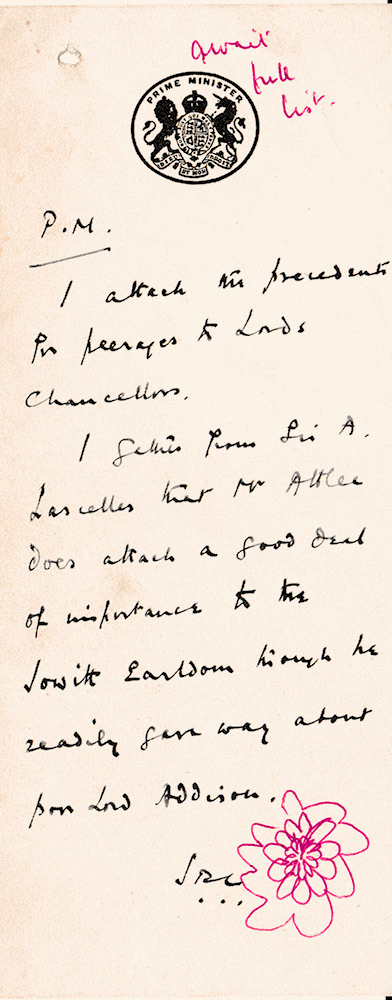 await
full
list.
PRIME MINISTER
DIEU ET MON DROIT
P.M.
I attach the precedents
for peerages to Lords
Chancellors.
I gather from Sir A.
Lascelles that Mr Attlee
does attach a good deal
of importance to the
Jowitt Earldom though he
readily gave way about
poor Lord Addison.